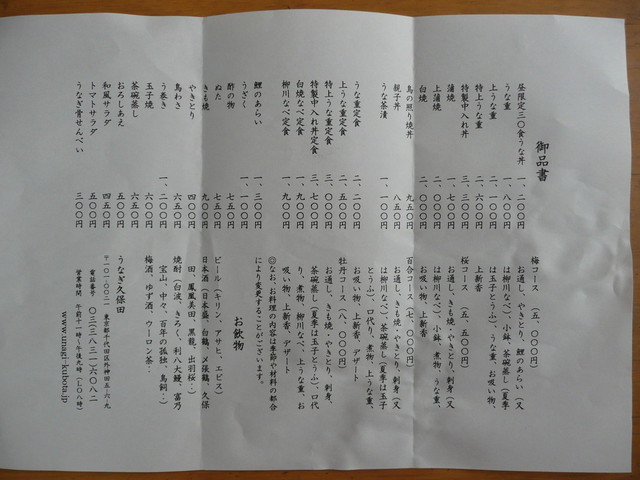 御品書
昼限定三〇食うな丼 一、二〇〇円
うな重 一、八〇〇円
上うな重 二、一〇〇円
特上うな重 二、六〇〇円
特製中入れ丼 三、三〇〇円
蒲焼 一、七〇〇円
上蒲焼 二、〇〇〇円
白焼 二、〇〇〇円
鳥の照り焼丼 九五〇円
親子丼 八五〇円
うな茶漬 一、一〇〇円
うな重定食 二、二〇〇円
上うな重定食 二、五〇〇円
特上うな重定食 三、〇〇〇円
特製中入れ丼定食 三、七〇〇円
白焼なべ定食 一、九〇〇円
柳川なべ定食 一、九〇〇円
鯉のあらい 一、三〇〇円
うざく 一、一〇〇円
酢の物 七五〇円
ぬた 七五〇円
きも焼 九〇〇円
やきとり 四〇〇円
鳥わさ 六五〇円
う巻き 一、二〇〇円
玉子焼 六〇〇円
茶碗蒸し 六五〇円
おろしあえ 五〇〇円
和風サラダ 四五〇円
トマトサラダ 五〇〇円
うなぎ骨せんべい 三〇〇円
梅コース (五、〇〇〇円)
お通し、やきとり、鯉のあらい(又
は柳川なべ)、小鉢、茶碗蒸し(夏季
は玉子とうふ)、うな重、お吸い物、
上新香
桜コース (五、五〇〇円)
お通し、きも焼・やきとり、刺身(又
は柳川なべ)、小鉢、煮物、うな重、
お吸い物、上新香
百合コース(七、〇〇〇円)
お通し、きも焼・やきとり、刺身(又
は柳川なべ)、茶碗蒸し(夏季は玉子
とうふ)、口代り、煮物、上うな重、
お吸い物、上新香、デザート
牡丹コース(八、〇〇〇円)
お通し、きも焼・やきとり、刺身、
茶碗蒸し(夏季は玉子とうふ)、口代
り、煮物、柳川なべ、上うな重、お
吸い物、上新香、デザート
◎なお、お料理の内容は季節や材料の都合
により変更することがございます。
お飲物
ビール(キリン、アサヒ、エビス)
日本酒(日本盛、白鶴、〆張鶴、久保
田、鳳凰美田、黒龍、出羽桜‥)
焼酎(白波、きろく、利八大鰻、富乃
宝山、中々、百年の孤独、鳥飼‥)
梅酒、ゆず酒、ウーロン茶‥
うなぎ久保田
〒一〇一-〇〇二一 東京都千代田区外神田五-六-九
電話番号 〇三(三八三一)六〇八二
営業時間 午前十一時~午後九時(L.O八時)
www.unagi-kubota.jp